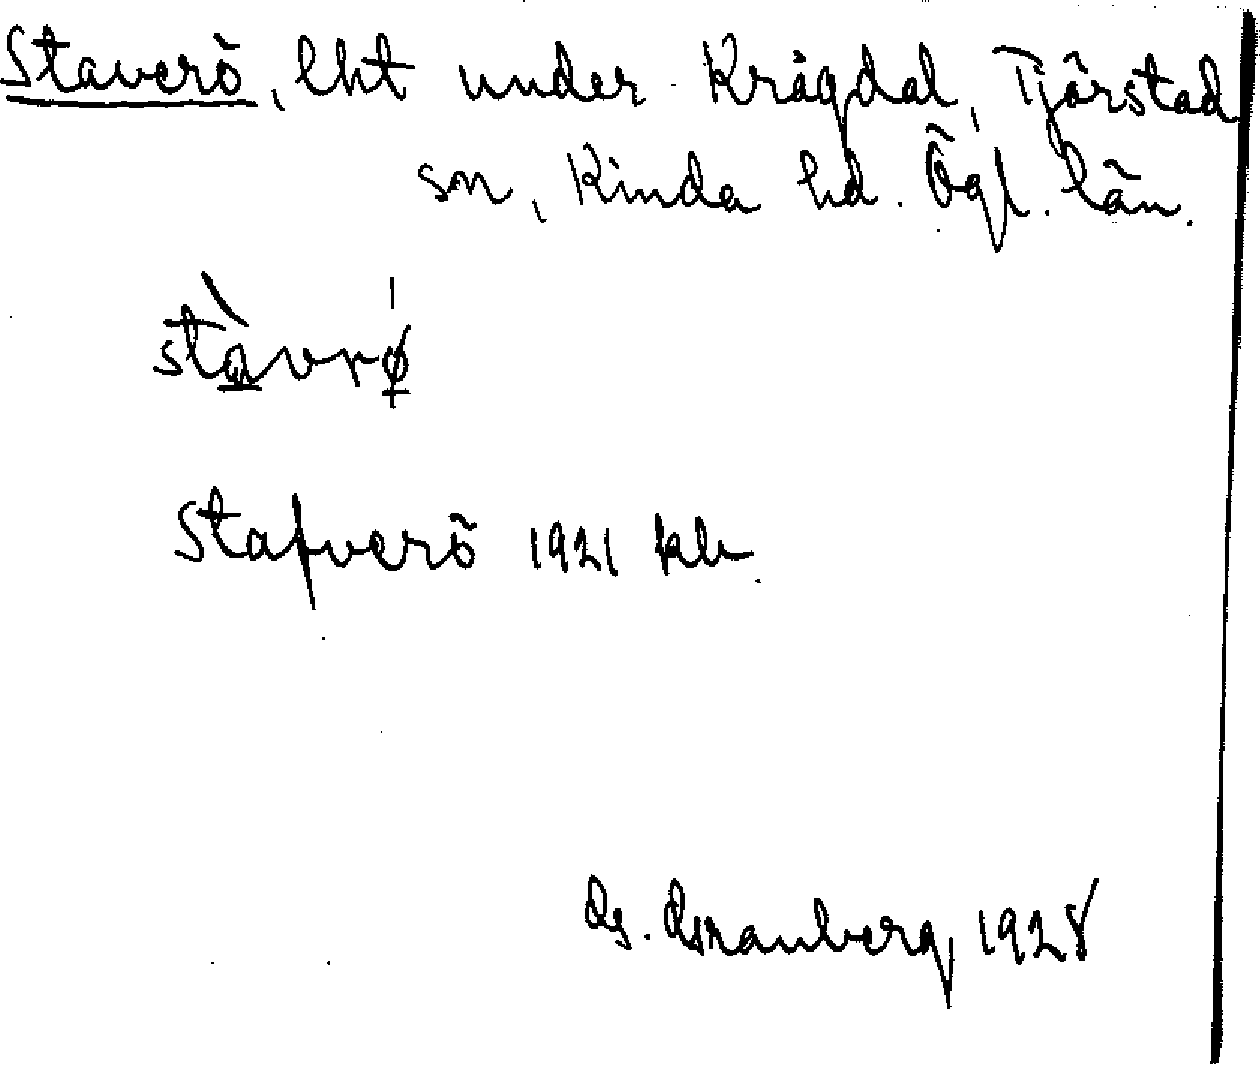 Staverö, lht under Krågdal, Tjärstad
sn, Kinda hd. Ögl. län.
stàvrø
Stafverö 1921 kb
G. Granberg 1928